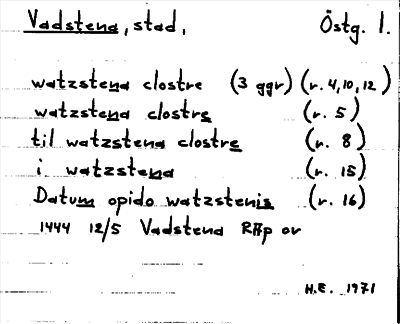 Vadstena, stad, Östg. l.
watzstena clostre (3 ggr) (r. 4, 10, 12)
watzstena clostre (r. 5)
til watzstena clostre (r. 8)
i watzstena (r. 15)
Datum opido watzstenis (r. 16)
1444 12/5 Vadstena RApp or
H.E. 1971